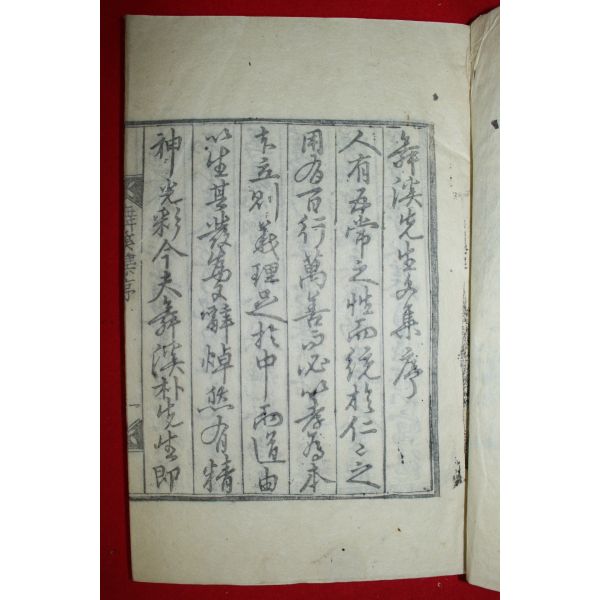 舞溪先生文集序
人有五常之性而統於仁仁之
用有百行萬善而必以孝爲本
夫立則義理足於中而道由
以生其發爲文辭焯然有精
神光彩今夫舞溪朴先生即
舞溪集序
一